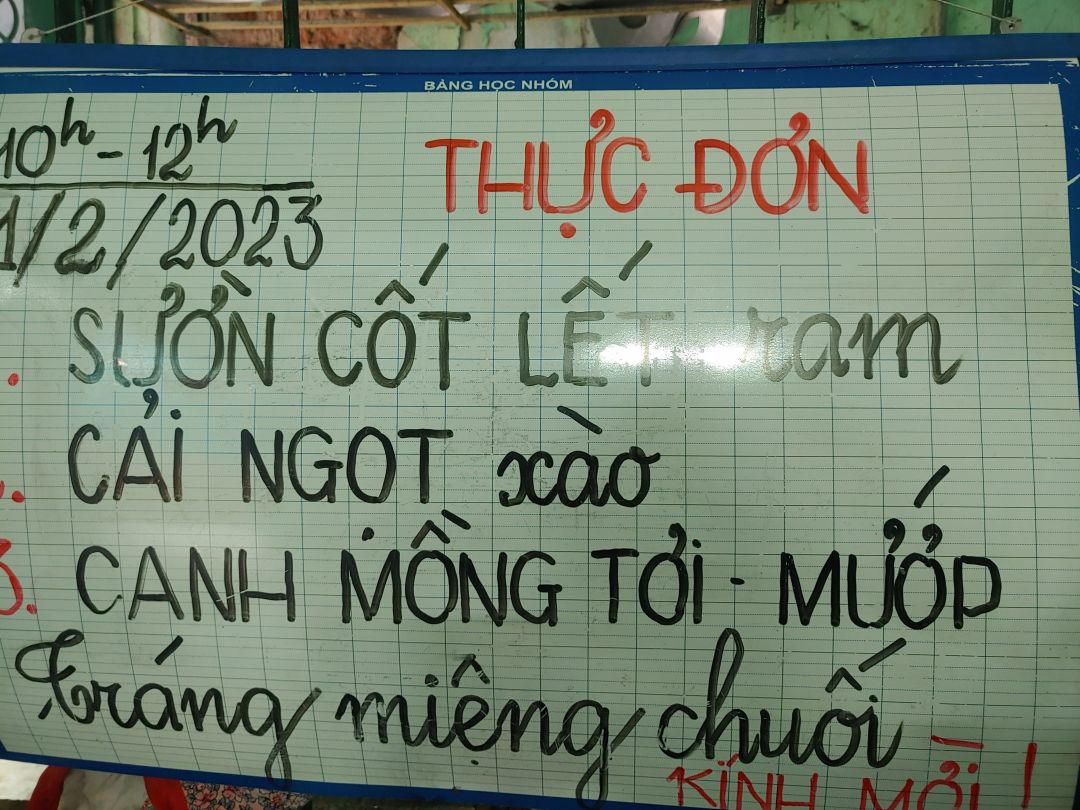 BẢNG HỌC NHÓM
10h - 12h
THỰC ĐƠN
1/2/2023
SƯỜN CỐT LẾT ram
CẢI NGỌT xào
3. CANH MỒNG TƠI - MƯỚP
Tráng miệng chuối
KÍNH MỜI!